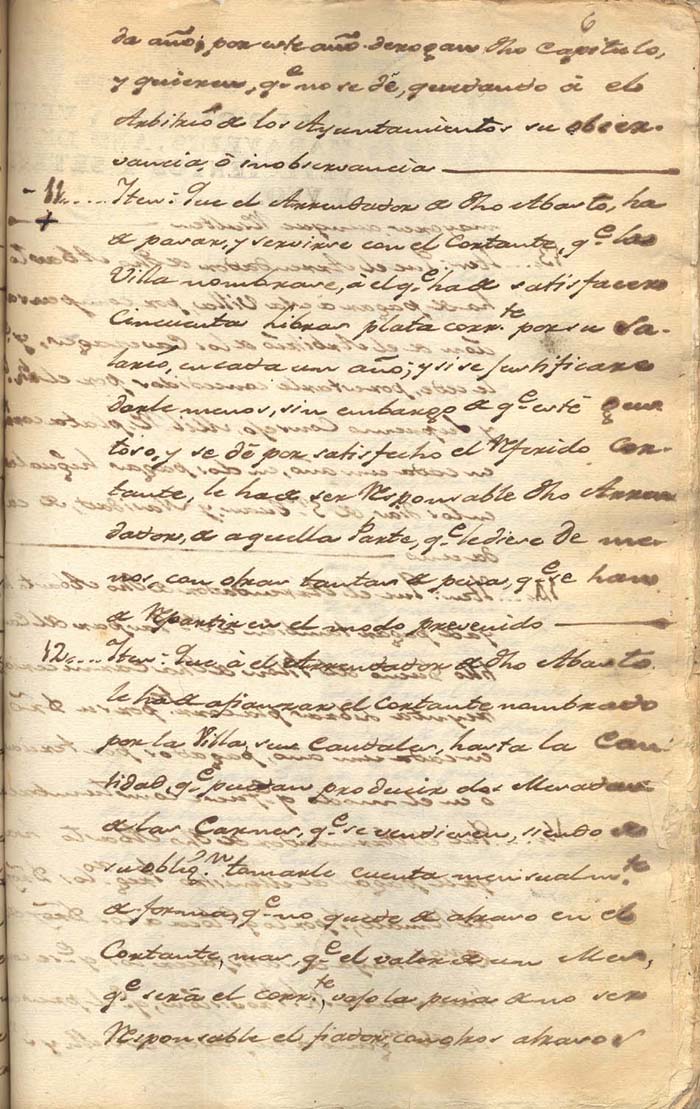 6
da año; por este año derogan dho Capitulo,
y quieren, q.e no se dé, quedando à el
Arbitrio de los Ayuntamientos su obser-
vancia, ò inobservancia
11.... Iten: Que el Arrendador de dho Abasto, ha
de pasar, y servirse con el Cortante, q.e la
Villa nombrare, à el q.e ha de satisfacer
Cinquenta libras plata corr.te por su Sa-
lario, en cada un año; y si se justificare
darle menos, sin embargo de q.e esté gus-
toso, y se dé por satisfecho el Referido Cor-
tante, le ha de ser Responsable dho Arren-
dador, de aquella Parte, q.e le diese de me-
nos, con otras tantas de pena, q.e se han
de Repartir en el modo prevenido
12.... Iten: Que à el Arrendador de dho Abasto
le ha de afianzar el Cortante nombrado
por la Villa, sus Caudales, hasta la Can-
tidad, q.e puedan producir dos Mesadas
de las Carnes, q.e se vendieren, siendo de
su oblig.n tomarle cuenta mensualm.te
de forma, q.e no quede de atraso en el
Cortante, mas, q.e el valor de un Mes,
q.e será el corr.te, vajo la pena de no ser
Responsable el fiador, con otros atrasos